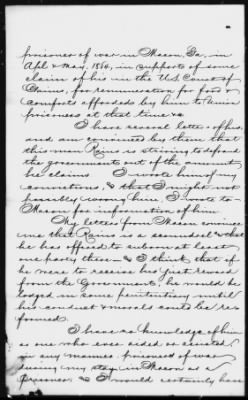 prisoner of war in Macon, Ga, in
Apl & May, 1864, in support of some
claim of his in the U.S. Court of
Claims, for remuneration for food &
comforts afforded by him to Union
prisoners at that time &c
I have several letters of his,
and am convinced by them that
this man Rains is striving to defraud
the government out of the amount
he claims I wrote him of my
convictions, & that I might not
possibly wrong him, I wrote to
Macon for information of him
The letters from Macon convince
me that Rains is a scoundrel & that
he has offered to suborn at least
one party there — & I think that if
he were to receive his just reward
from the Government, he would be
lodged in some penitentiary until
his conduct & morals could be re-
formed.
I have no knowledge of him
as one who ever aided or assisted
in any manner, prisoners of war
during my stay in Macon as a
prisoner & I would certainly have